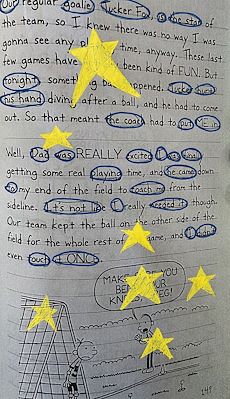 Our regular goalie, Tucker Fox, is the star of
the team, so I knew there was no way I was
gonna see any time, anyway. These last
few games have been kind of FUN. But
tonight, something happened. Tucker
his hand diving after a ball, and he had to come
out. So that meant the coach had to put ME in.
Well, Dad was REALLY excited I was
getting some real playing time, and he came down
to my end of the field to coach me from the
sideline. It's not like I really needed it though.
Our team kept the ball on the other side of the
field for the whole rest of game, and I didn't
even touch it ONCE.
MAKE YOU
BEND YOUR
KNEES, GREG!